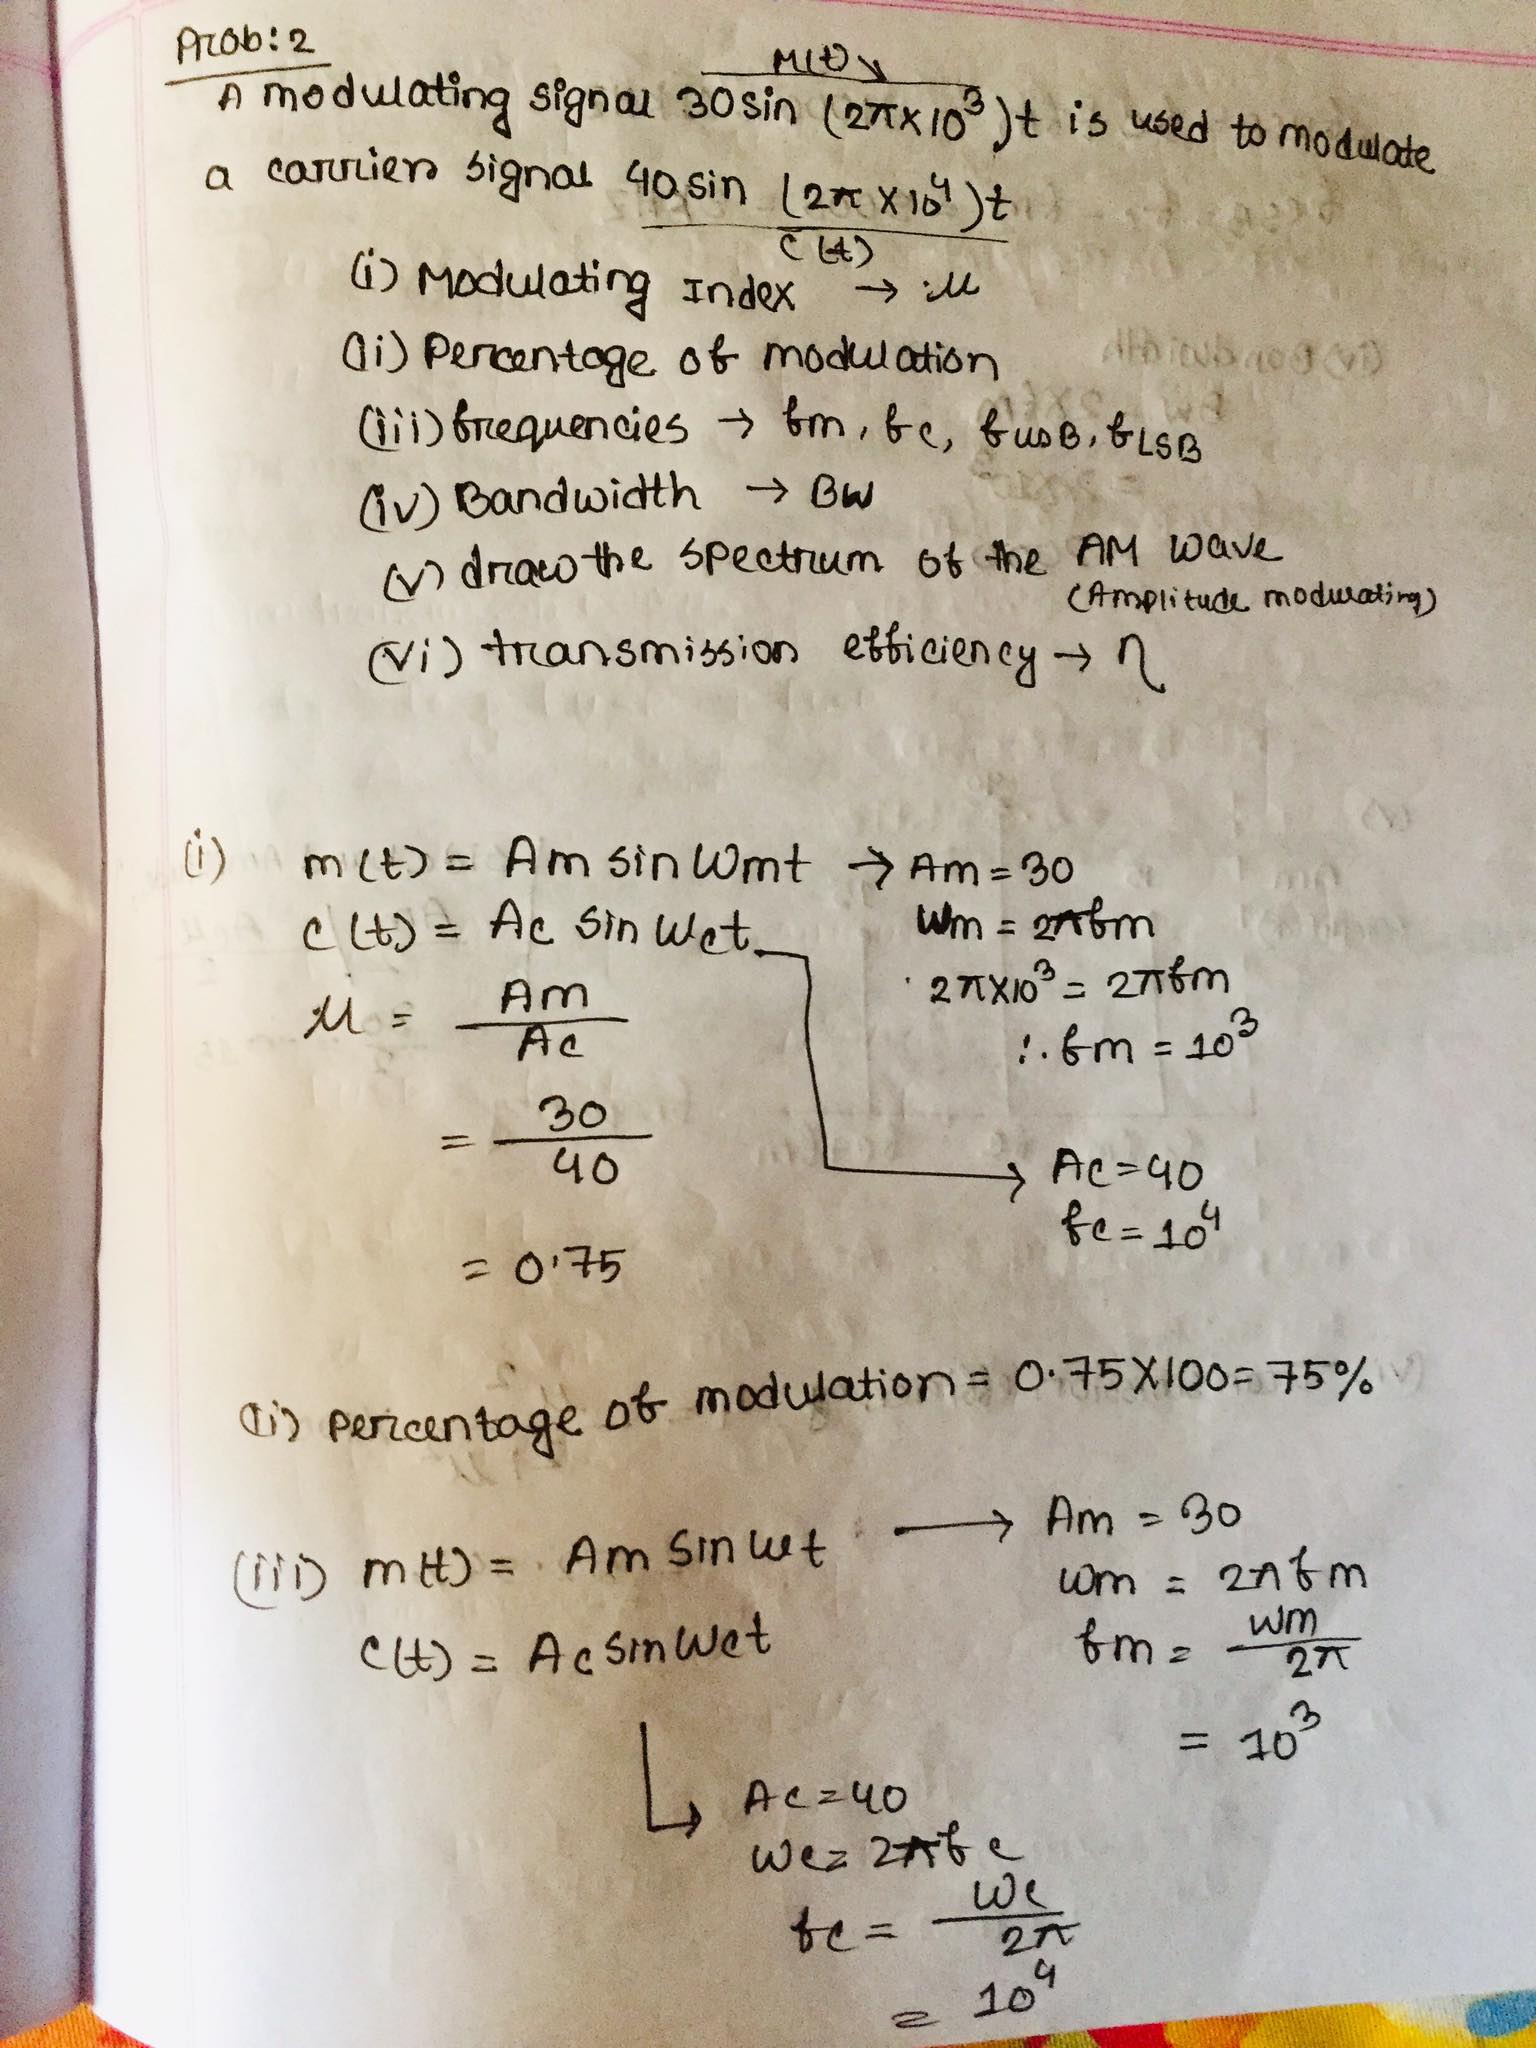 Prob: 2
M(t)
A modulating signal 30 sin (2π×10³)t is used to modulate
a carrier signal 40 sin (2π×10⁴)t
c(t)
(i) Modulating Index → μ
(ii) Percentage of modulation
(iii) frequencies → fm, fc, fUSB, fLSB
(iv) Bandwidth → BW
(v) draw the spectrum of the AM wave
(Amplitude modulating)
(vi) transmission efficiency → η
(i) m(t) = Am sin Wmt → Am = 30
c(t) = Ac sin Wct
Wm = 2πfm
μ = Am / Ac
2π×10³ = 2πfm
∴ fm = 10³
= 30 / 40
Ac = 40
fc = 10⁴
= 0.75
(ii) percentage of modulation = 0.75×100 = 75%
(iii) m(t) = Am sin wt → Am = 30
wm = 2πfm
c(t) = Ac sin Wct
fm = wm / 2π
= 10³
Ac = 40
Wc = 2πfc
fc = Wc / 2π
= 10⁴